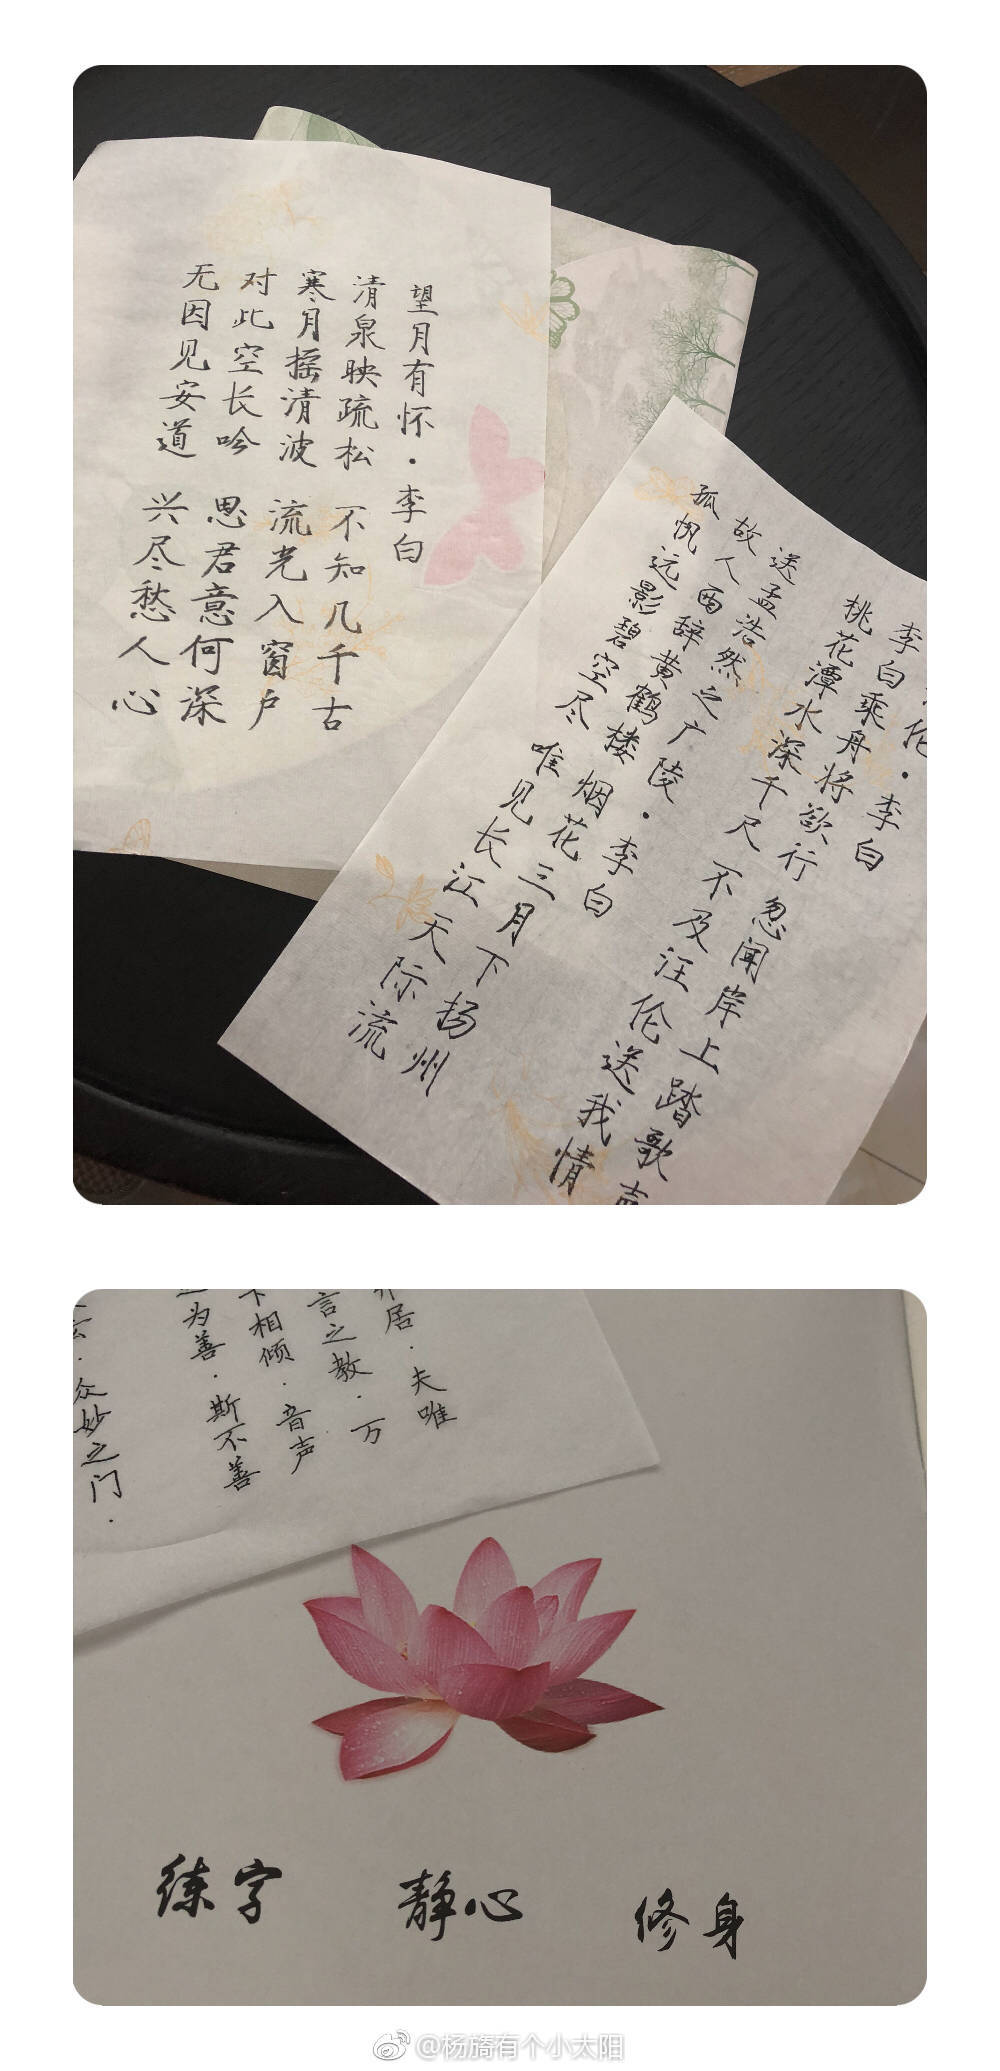 望月有怀·李白
清泉映疏松 不知几千古
寒月摇清波 流光入窗户
对此空长吟 思君意何深
无因见安道 兴尽愁人心
伦·李白
李白乘舟将欲行 忽闻岸上踏歌声
桃花潭水深千尺 不及汪伦送我情
送孟浩然之广陵·李白
故人西辞黄鹤楼 烟花三月下扬州
孤帆远影碧空尽 唯见长江天际流
居·夫唯
言之教·万
下相倾·音声
为善·斯不善
众妙之门·
练字 静心 修身
@杨旖有个小太阳